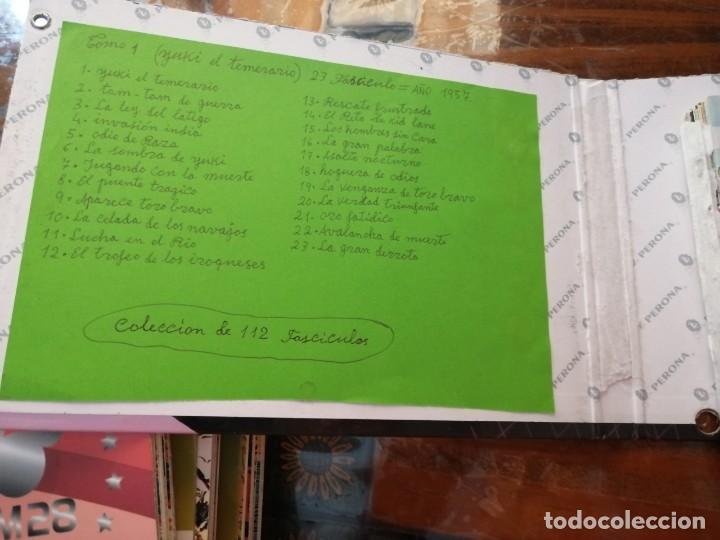 Tomo 1 (yuki el temerario) 23 Fasciculo = AÑO 1957
1- yuki el temerario
2- tam-tam de guerra
3- La ley del latigo
4- invasión india
5- odio de Raza
6- La sombra de yuki
7- Jugando con la muerte
8- El puente tragico
9- Aparece toro bravo
10- La celada de los navajos
11- Lucha en el Rio
12- El trofeo de los iroqueses
13- Rescate frustrado
14- El Reto de Kid Lane
15- Los hombres sin Cara
16- La gran palabra
17- Asalto nocturno
18- hoguera de odios
19- La venganza de toro bravo
20- La verdad triunfante
21- oro fatidico
22- Avalancha de muerte
23- La gran derrota
Coleccion de 112 Fasciculos
PERONA
M28
todocoleccion